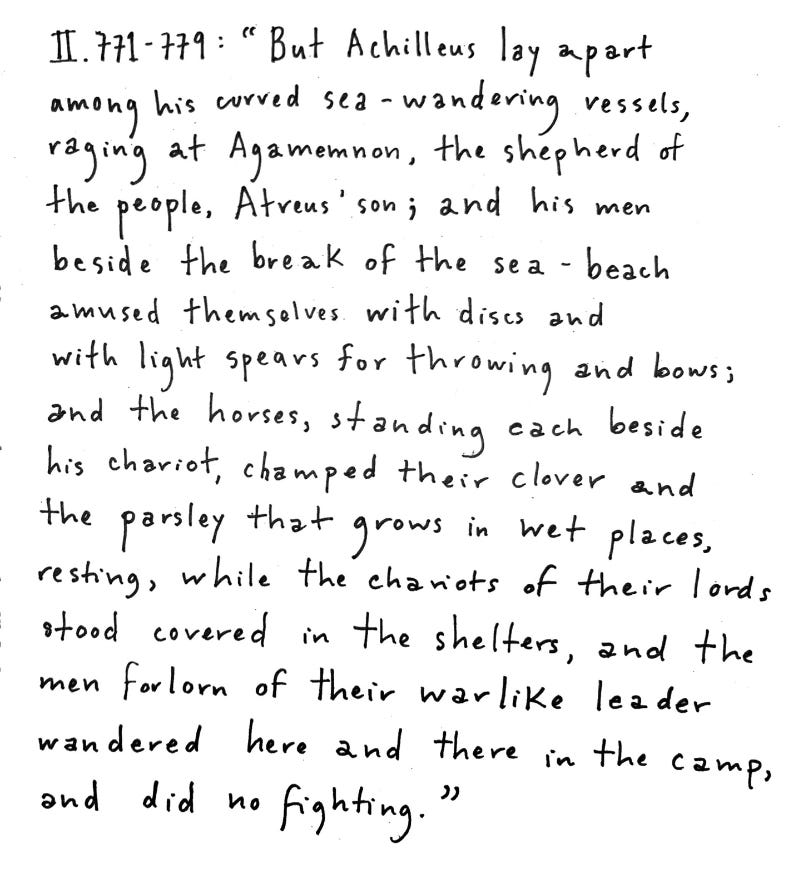 II. 771-779: "But Achilleus lay apart
among his curved sea-wandering vessels,
raging at Agamemnon, the shepherd of
the people, Atreus' son; and his men
beside the break of the sea-beach
amused themselves with discs and
with light spears for throwing and bows;
and the horses, standing each beside
his chariot, champed their clover and
the parsley that grows in wet places,
resting, while the chariots of their lords
stood covered in the shelters, and the
men forlorn of their warlike leader
wandered here and there in the camp,
and did no fighting."